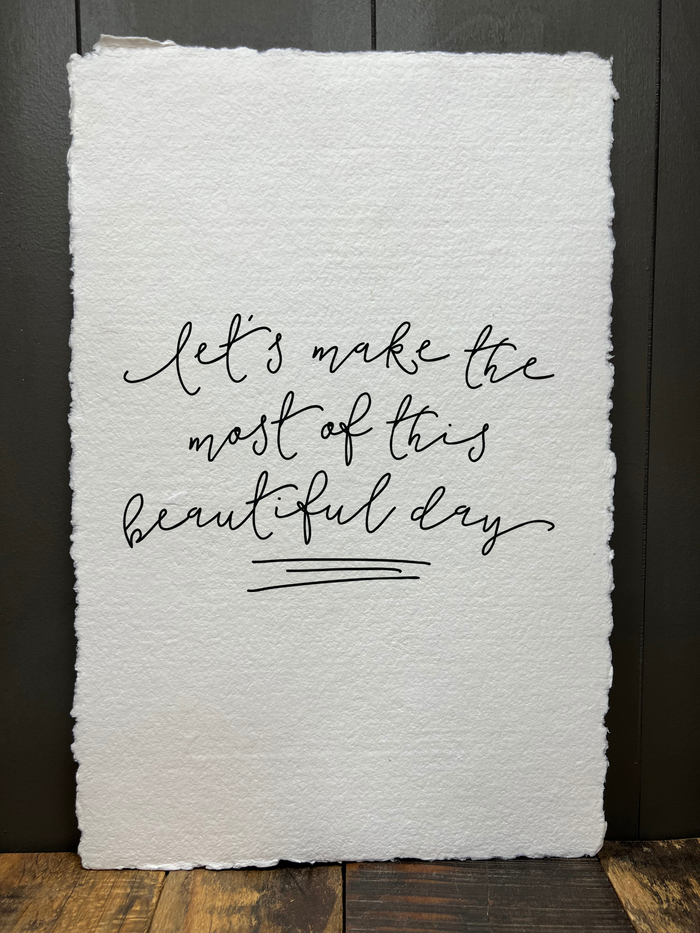 let's make the
most of this
beautiful day